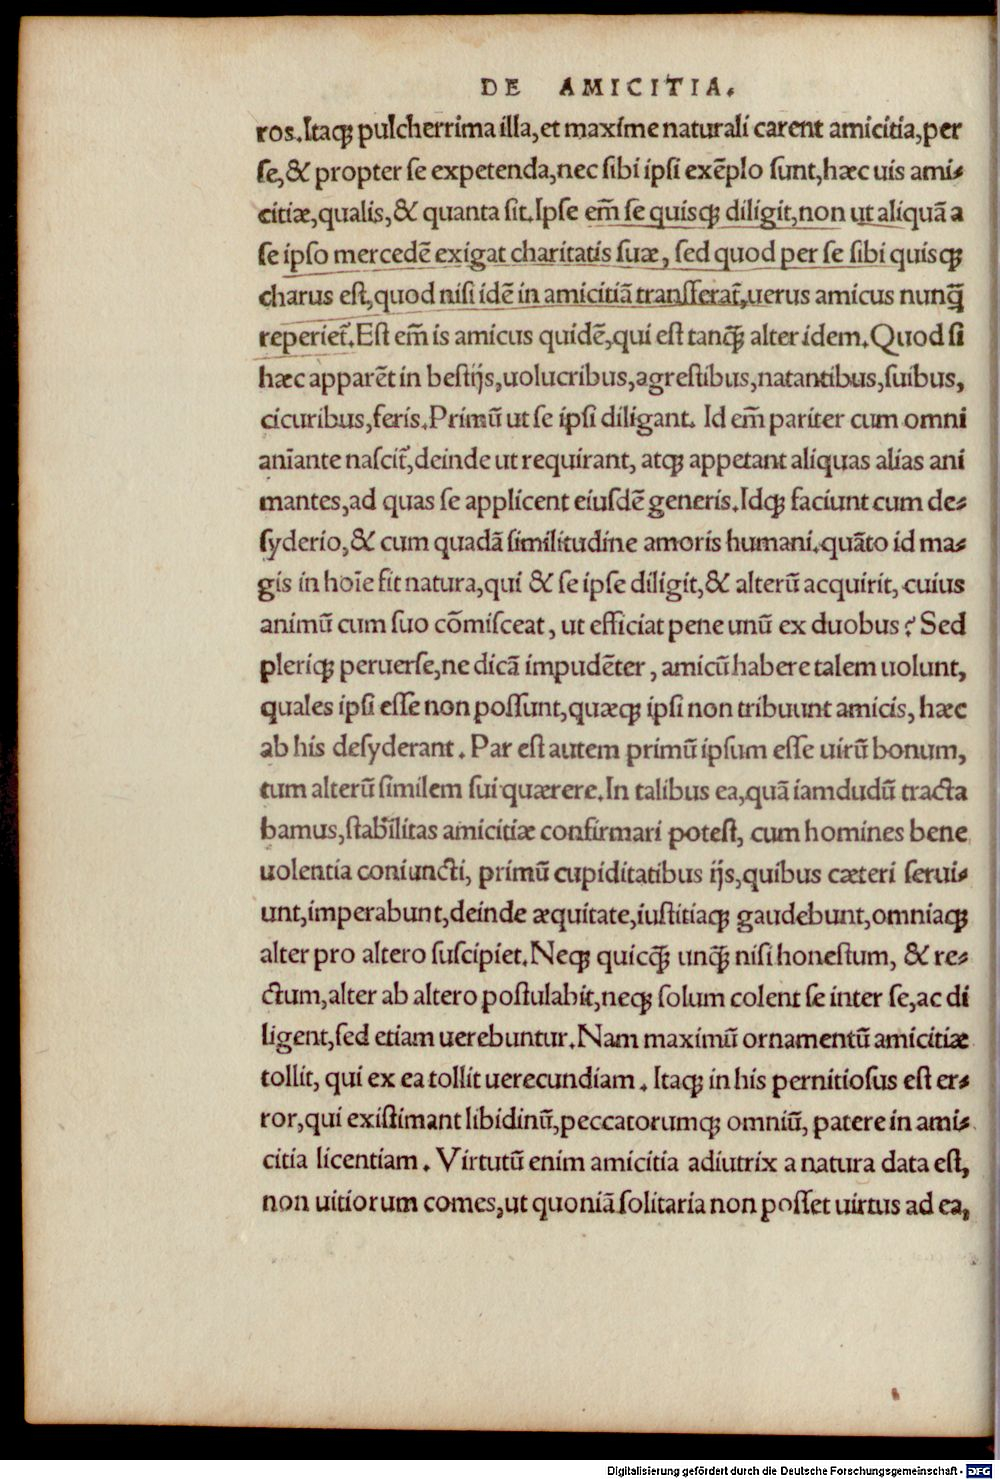 DE AMICITIA.
ros. Itaqꝫ pulcherrima illa, et maxime naturali carent amicitia, per
se, & propter se expetenda, nec sibi ipsi exēplo sunt, hæc uis ami-
citiæ, qualis, & quanta sit. Ipse em̄ se quisqꝫ diligit, non ut aliquā a
se ipso mercedē exigat charitatis suæ, sed quod per se sibi quisqꝫ
charus est, quod nisi idē in amicitiā transferat̄, uerus amicus nunq̄
reperiet̄. Est em̄ is amicus quidē, qui est tanq̄ alter idem. Quod si
hæc apparēt in bestijs, uolucribus, agrestibus, natantibus, suibus,
cicuribus, feris. Primū ut se ipsi diligant. Id em̄ pariter cum omni
anīante nascit̄, deinde ut requirant, atqꝫ appetant aliquas alias ani
mantes, ad quas se applicent eiusdē generis. Idqꝫ faciunt cum de-
syderio, & cum quadā similitudine amoris humani. quāto id ma-
gis in hoīe fit natura, qui & se ipse diligit, & alterū acquirit, cuius
animū cum suo cōmisceat, ut efficiat pene unū ex duobus? Sed
pleriqꝫ peruerse, ne dicā impudēter, amicū habere talem uolunt,
quales ipsi esse non possunt, quæqꝫ ipsi non tribuunt amicis, hæc
ab his desyderant. Par est autem primū ipsum esse uirū bonum,
tum alterū similem sui quærere. In talibus ea, quā iamdudū tracta
bamus, stabilitas amicitiæ confirmari potest, cum homines bene
uolentia coniuncti, primū cupiditatibus ijs, quibus cæteri serui-
unt, imperabunt, deinde æquitate, iustitiaqꝫ gaudebunt, omniaqꝫ
alter pro altero suscipiet. Neqꝫ quicq̄ unq̄ nisi honestum, & re-
ctum, alter ab altero postulabit, neqꝫ solum colent se inter se, ac di
ligent, sed etiam uerebuntur. Nam maximū ornamentū amicitiæ
tollit, qui ex ea tollit uerecundiam. Itaqꝫ in his pernitiosus est er-
ror, qui existimant libidinū, peccatorumqꝫ omniū, patere in ami-
citia licentiam. Virtutū enim amicitia adiutrix a natura data est,
non uitiorum comes, ut quoniā solitaria non posset uirtus ad ea,
Digitalisierung gefördert durch die Deutsche Forschungsgemeinschaft - DFG